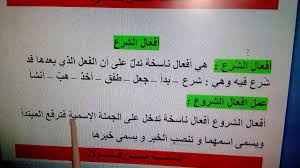 أفعال الشرع
أفعال الشرع : هي أفعال ناسخة تدل على أن الفعل الذي بعدها قد
شرع فيه وهي : شرع – بدأ – جعل – طفق – أخذ – هبّ – أنشأ
عمل أفعال الشروع :
أفعال الشروع أفعال ناسخة تدخل على الجملة الاسمية فترفع المبتدأ
ويسمى اسمها و تنصب الخبر و يسمى خبرها